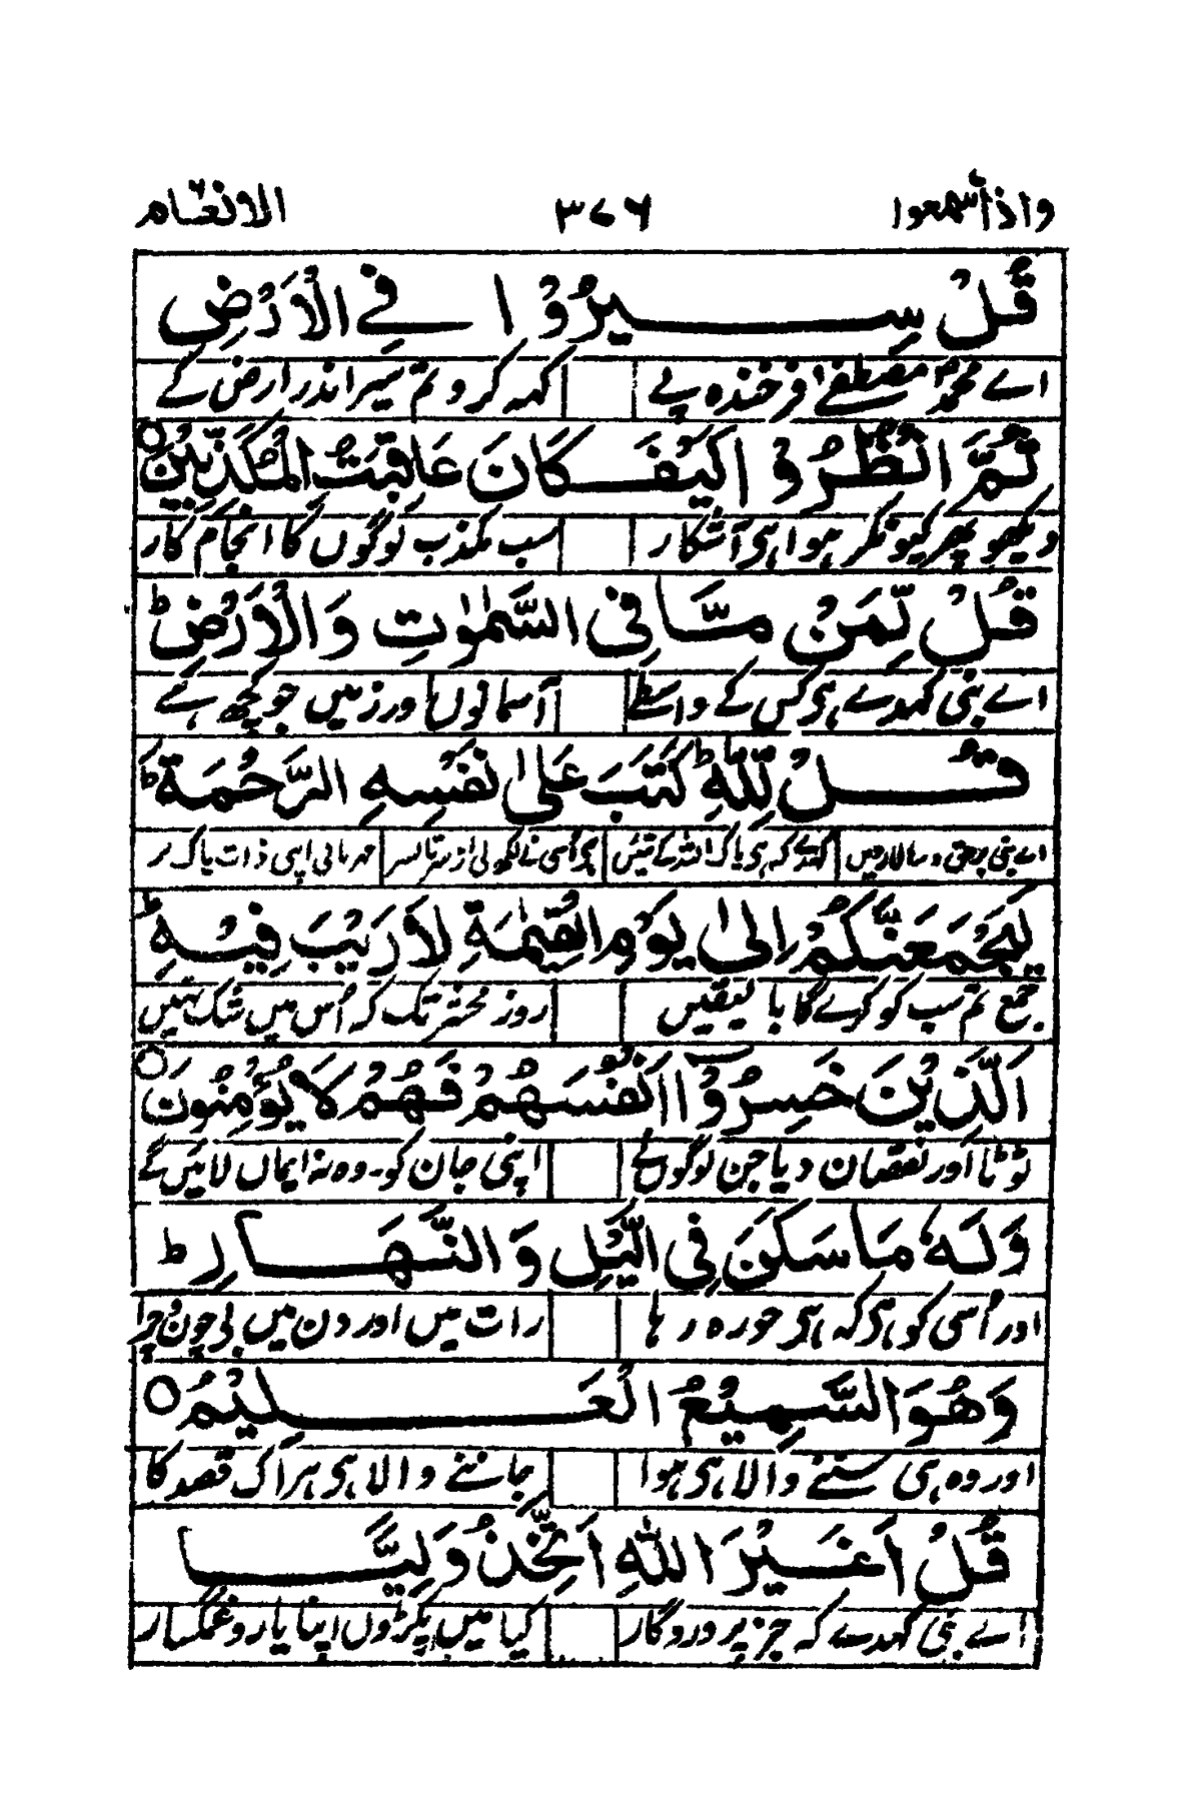 واذا سمعوا ۳۷۶ الانعام
قُلْ سِيْرُوْا فِي الْاَرْضِ
اے محمدؐ مصطفےٰ فرخندہ پے کہہ کرو تم سیر اندر ارض کے
ثُمَّ انْظُرُوْا كَيْفَ كَانَ عَاقِبَتُ الْمُكَذِّبِيْنَ ○
دیکھو پھر کیونکر ہوا ہی آشکار سب مکذب لوگوں کا انجام کار
قُلْ لِّمَنْ مَّا فِي السَّمٰوٰتِ وَالْاَرْضِ ط
اے نبی کہدے ہی کس کے واسطے آسمانوں اور زمیں جو کچھ ہے
قُلْ لِّلّٰهِ ط كَتَبَ عَلٰى نَفْسِهِ الرَّحْمَةَ ط
اے نبی بحق و سالار دیں کہدے کہ ہی پاک اللہ کے تئیں ہی اُسی نے لکھ لی از سرتاسر مہربانی اپنی ذات پاک پر
لَيَجْمَعَنَّكُمْ اِلٰى يَوْمِ الْقِيٰمَةِ لَا رَيْبَ فِيْهِ ط
جمع تم سب کو کرے گا بالیقیں روز محشر تک کہ اُس میں شک نہیں
اَلَّذِيْنَ خَسِرُوْا اَنْفُسَهُمْ فَهُمْ لَا يُؤْمِنُوْنَ ○
ٹوٹا اور نقصان دیا جن لوگوں نے اپنی جان کو۔ وہ نہ ایماں لائیں گے
وَلَهٗ مَا سَكَنَ فِي الَّيْلِ وَالنَّهَارِ ط
اور اُسی کو ہی کہ ہی جو رہ رہا رات میں اور دن میں بی چون و چرا
وَهُوَ السَّمِيْعُ الْعَلِيْمُ ○
اور وہ ہی سننے والا ہی ہوا جاننے والا ہی ہر اک قصد کا
قُلْ اَغَيْرَ اللّٰهِ اَتَّخِذُ وَلِيًّا
اے نبی کہدے کہ جز پروردگار کیا میں پکڑوں اپنا یار و غمگسار